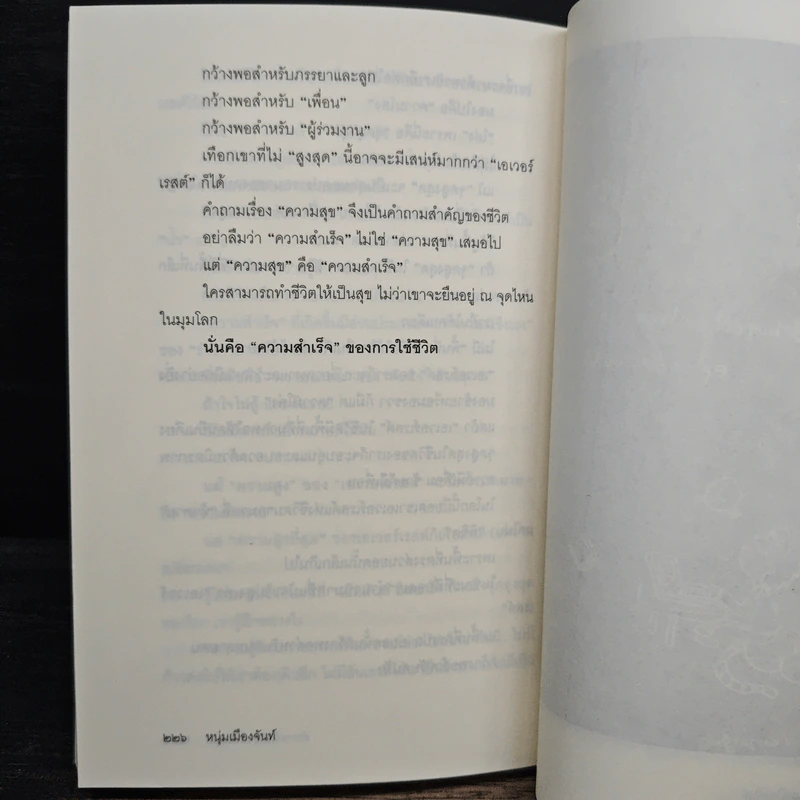 กว้างพอสำหรับภรรยาและลูก
กว้างพอสำหรับ “เพื่อน”
กว้างพอสำหรับ “ผู้ร่วมงาน”
เทือกเขาที่ไม่ “สูงสุด” นี้อาจจะมีเสน่ห์มากกว่า “เอเวอร์
เรสต์” ก็ได้
คำถามเรื่อง “ความสุข” จึงเป็นคำถามสำคัญของชีวิต
อย่าลืมว่า “ความสำเร็จ” ไม่ใช่ “ความสุข” เสมอไป
แต่ “ความสุข” คือ “ความสำเร็จ”
ใครสามารถทำชีวิตให้เป็นสุข ไม่ว่าเขาจะยืนอยู่ ณ จุดไหน
ในมุมโลก
นั่นคือ “ความสำเร็จ” ของการใช้ชีวิต
๒๒๖ หนุ่มเมืองจันท์